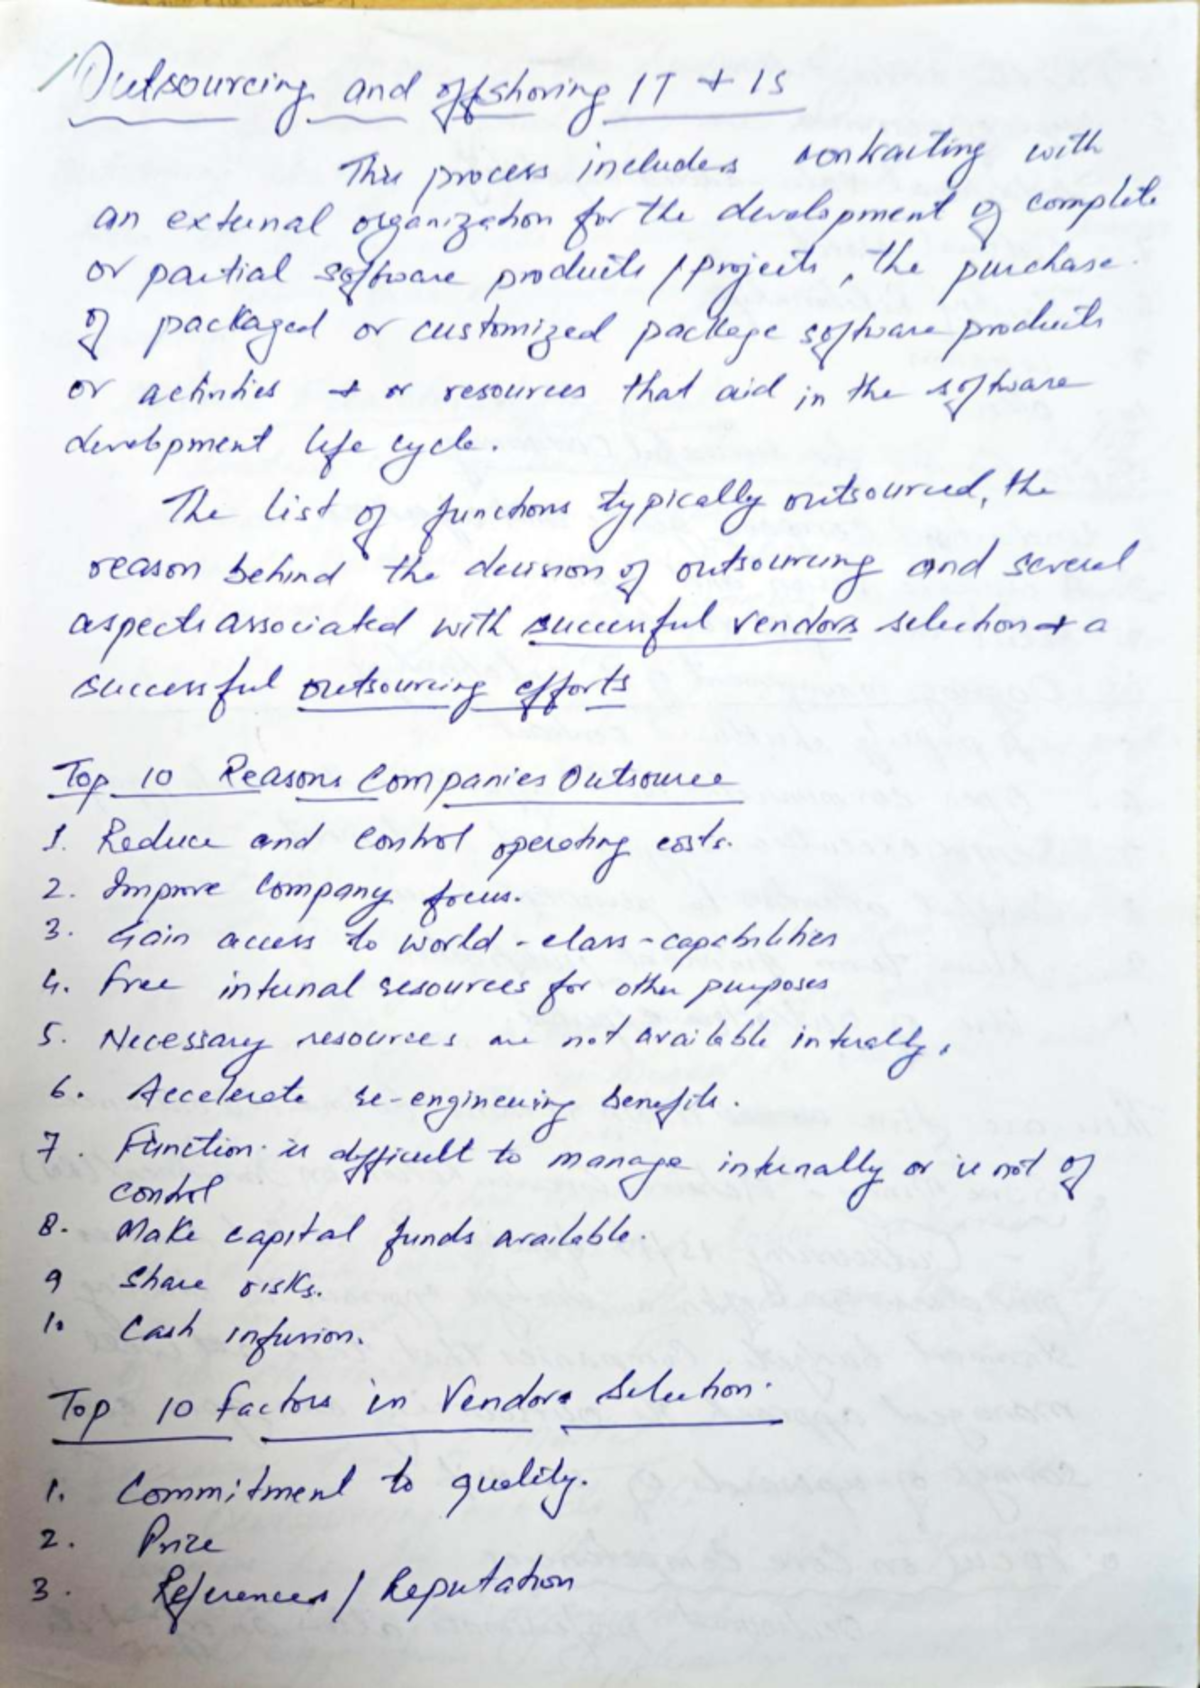 Outsourcing and offshoring IT + IS
This process includes contracting with
an external organization for the development of complete
or partial software products / projects, the purchase
of packaged or customized package software products
or activities + or resources that aid in the software
development life cycle.
The list of functions typically outsourced, the
reason behind the decision of outsourcing and several
aspects associated with successful vendors selection + a
successful outsourcing efforts
Top 10 Reasons Companies Outsource
1. Reduce and Control operating costs.
2. Improve Company focus.
3. Gain access to world-class-capabilities
4. Free internal resources for other purposes
5. Necessary resources are not available interally.
6. Accelerate re-engineering benefits.
7. Function is difficult to manage internally or is not of
control
8. Make capital funds available.
9 Share risks.
10 Cash infusion.
Top 10 Factors in Vendors Selection.
1. Commitment to quality.
2. Price
3. References / Reputation